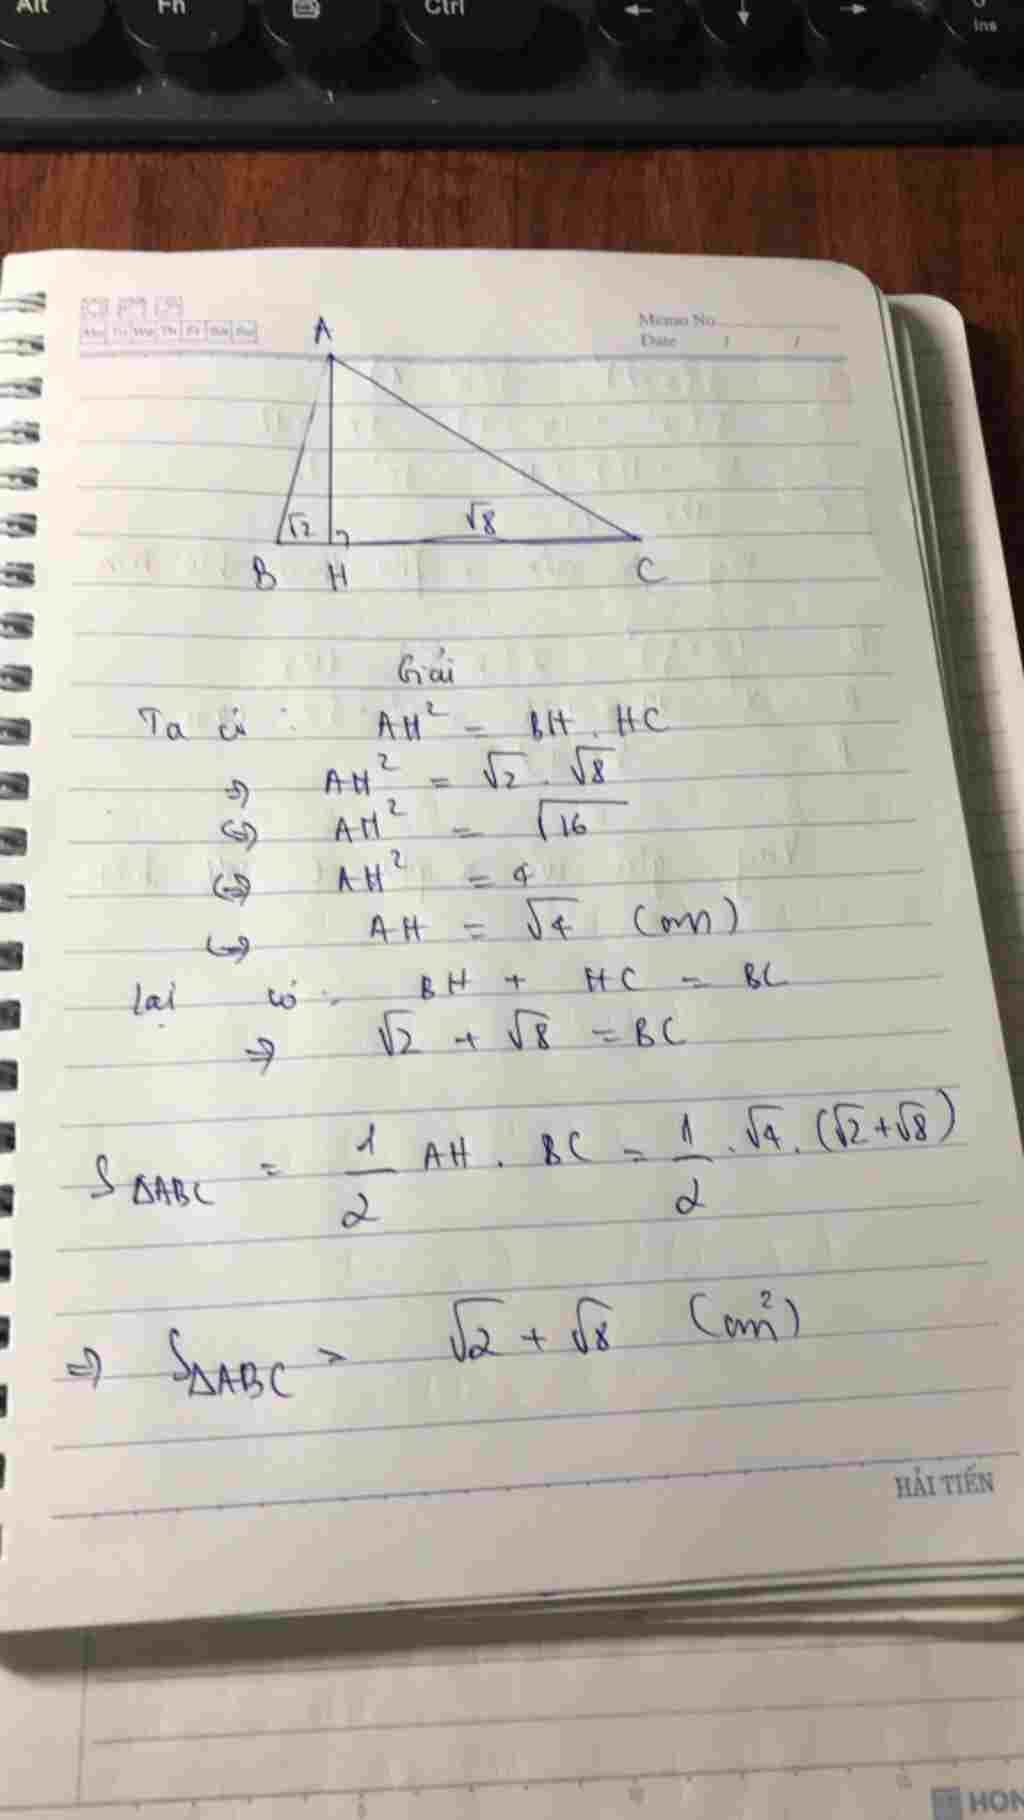 Alt Fn Ctrl ← ↓ → Ins
Memo No.
Date / /
A
√2 √8
B H C
Giải
Ta có : AH² = BH . HC
⇒ AH² = √2 . √8
⇔ AH² = √16
⇔ AH² = 4
⇔ AH = √4 (cm)
Lại có : BH + HC = BC
⇒ √2 + √8 = BC
S△ABC = 1/2 AH . BC = 1/2 . √4 . (√2 + √8)
⇒ S△ABC = √2 + √8 (cm²)
HẢI TIẾN